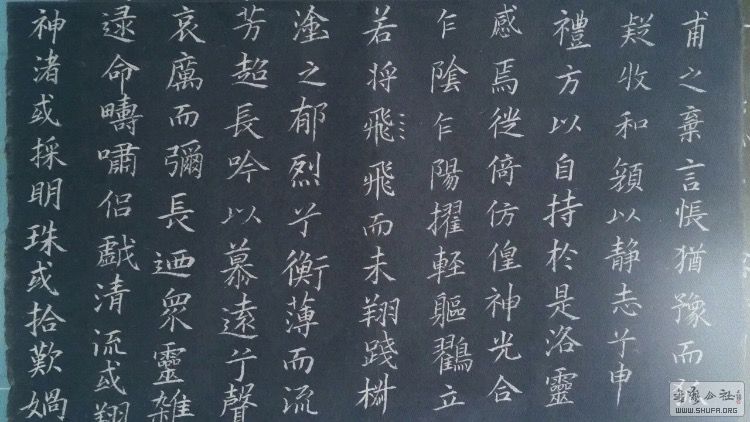 甫之棄言悵猶豫而
疑收和顏以静志兮申
禮方以自持於是洛靈
感焉徙倚仿偟神光合
乍陰乍陽擢輕軀鶴立
若将飛飛而未翔踐椒
塗之郁烈兮衡薄而流
芳超長吟以慕遠兮聲
哀厲而彌長迺眾靈雑
遝命疇嘯侣戲清流或翔
神渚或採明珠或拾歎媧
WWW.SHUFA.ORG